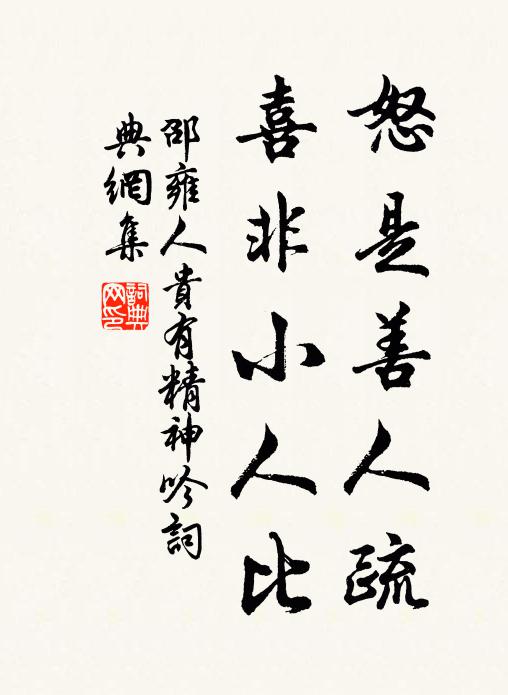 怒是善人疏
喜非小人比
邵雍人貴有精神吟詞
典網集
詞典
网印